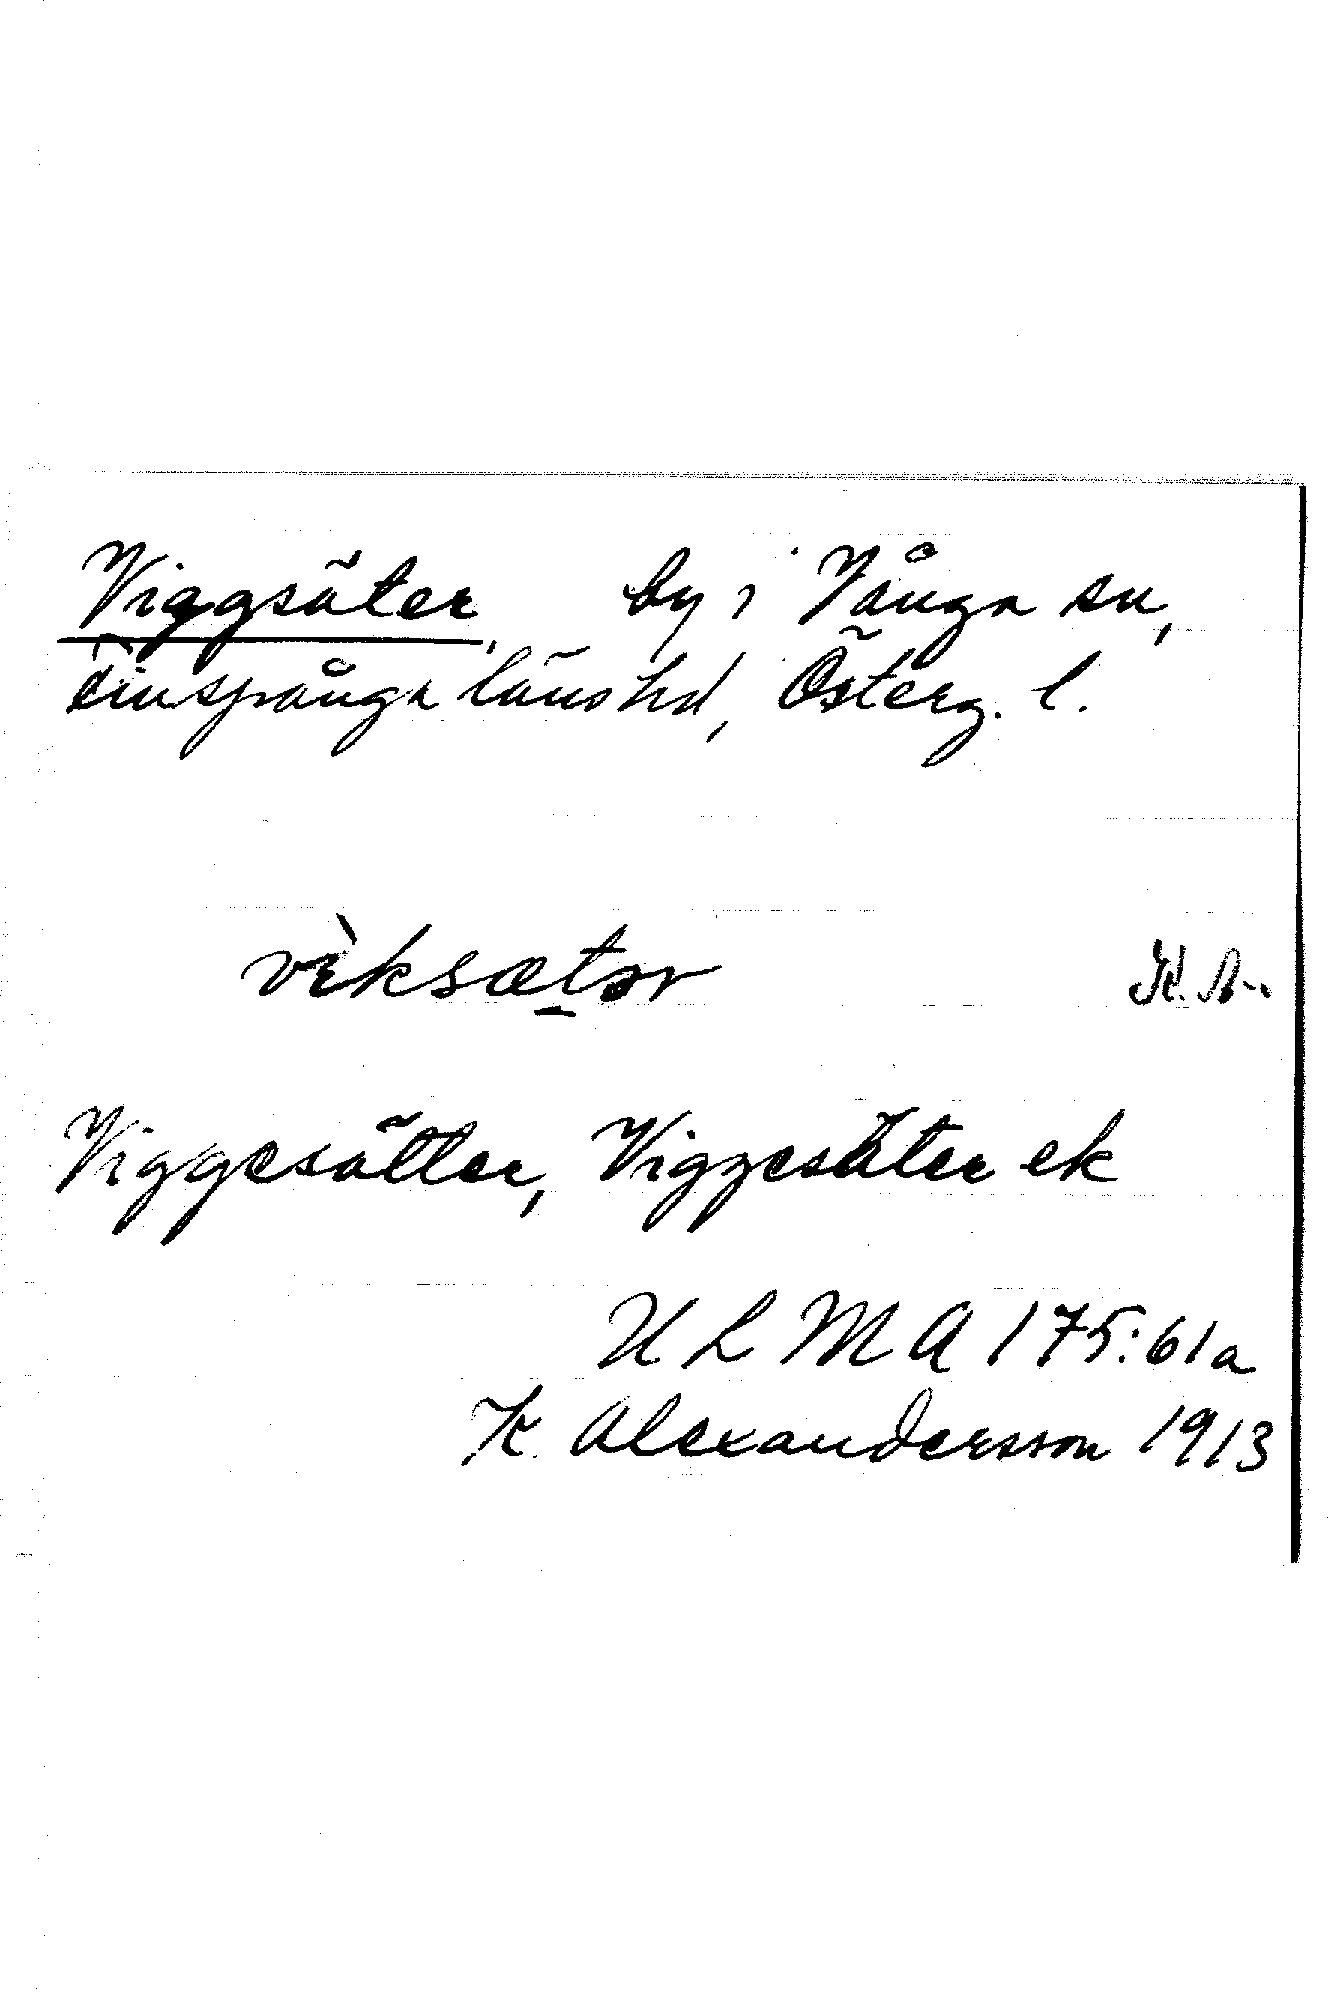 Viggsäter, by i Vånga sn,
Finspånga läns hd, Österg. l.
vìksætər K. A.
Viggesätter, Viggesäter ek
ULMA 175:61a
K Alexandersson 1913